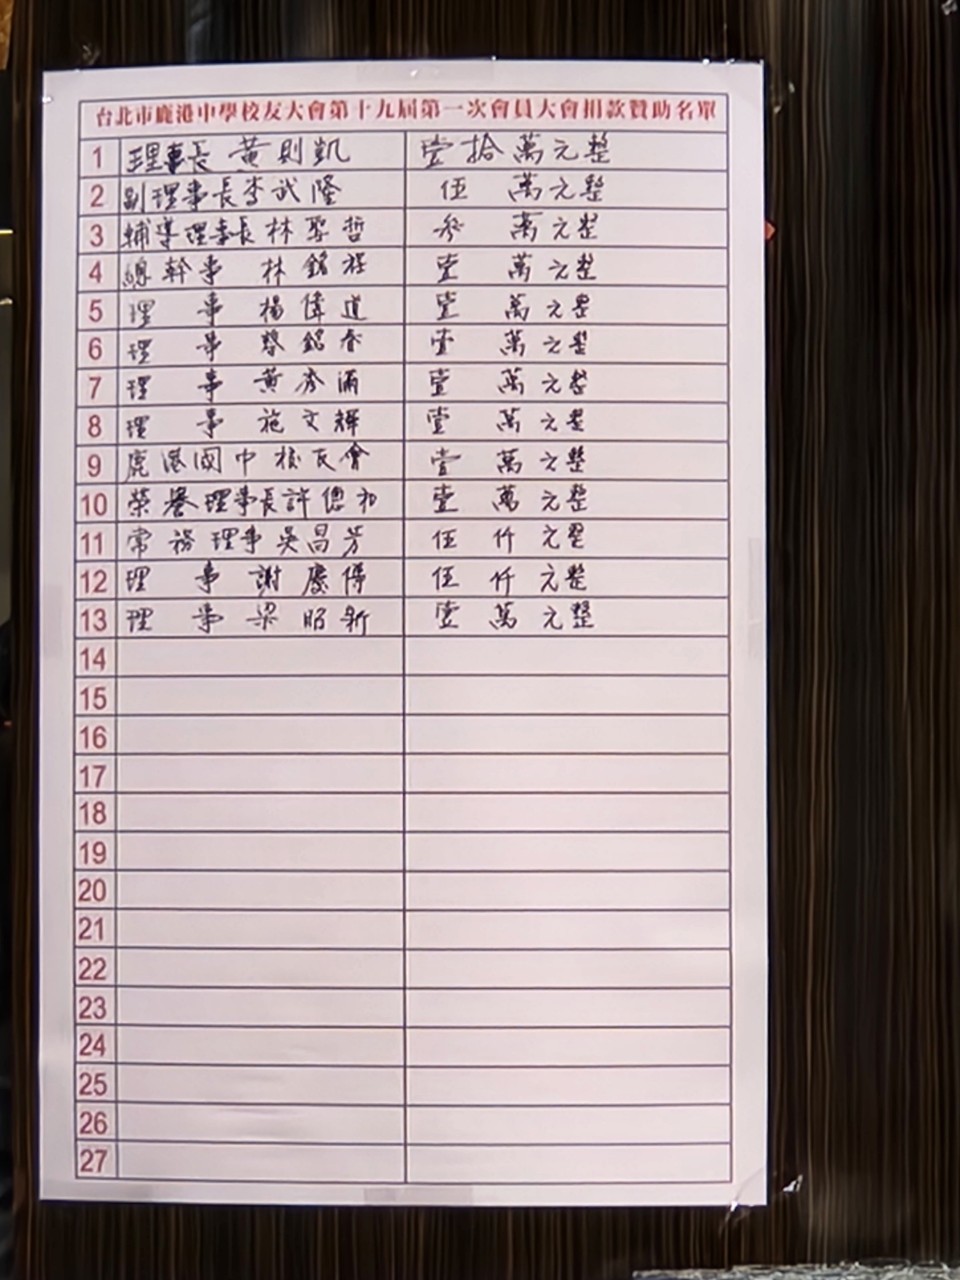 台北市鹿港中學校友大會第十九屆第一次會員大會捐款贊助名單
1 理事長 黃則凱 壹拾萬元整
2 副理事長李武隆 伍 萬元整
3 輔導理事長林聖哲 參 萬元整
4 總幹事 林銘程 壹 萬元整
5 理 事 楊偉道 壹 萬元整
6 理 事 蔡銘春 壹 萬元整
7 理 事 黃秀滿 壹 萬元整
8 理 事 施文輝 壹 萬元整
9 鹿港國中校友會 壹 萬元整
10 榮譽理事長許德和 壹 萬元整
11 常務理事吳昌芳 伍 仟 元整
12 理 事 謝慶傳 伍 仟 元整
13 理 事 梁昭新 壹 萬元整
14
15
16
17
18
19
20
21
22
23
24
25
26
27